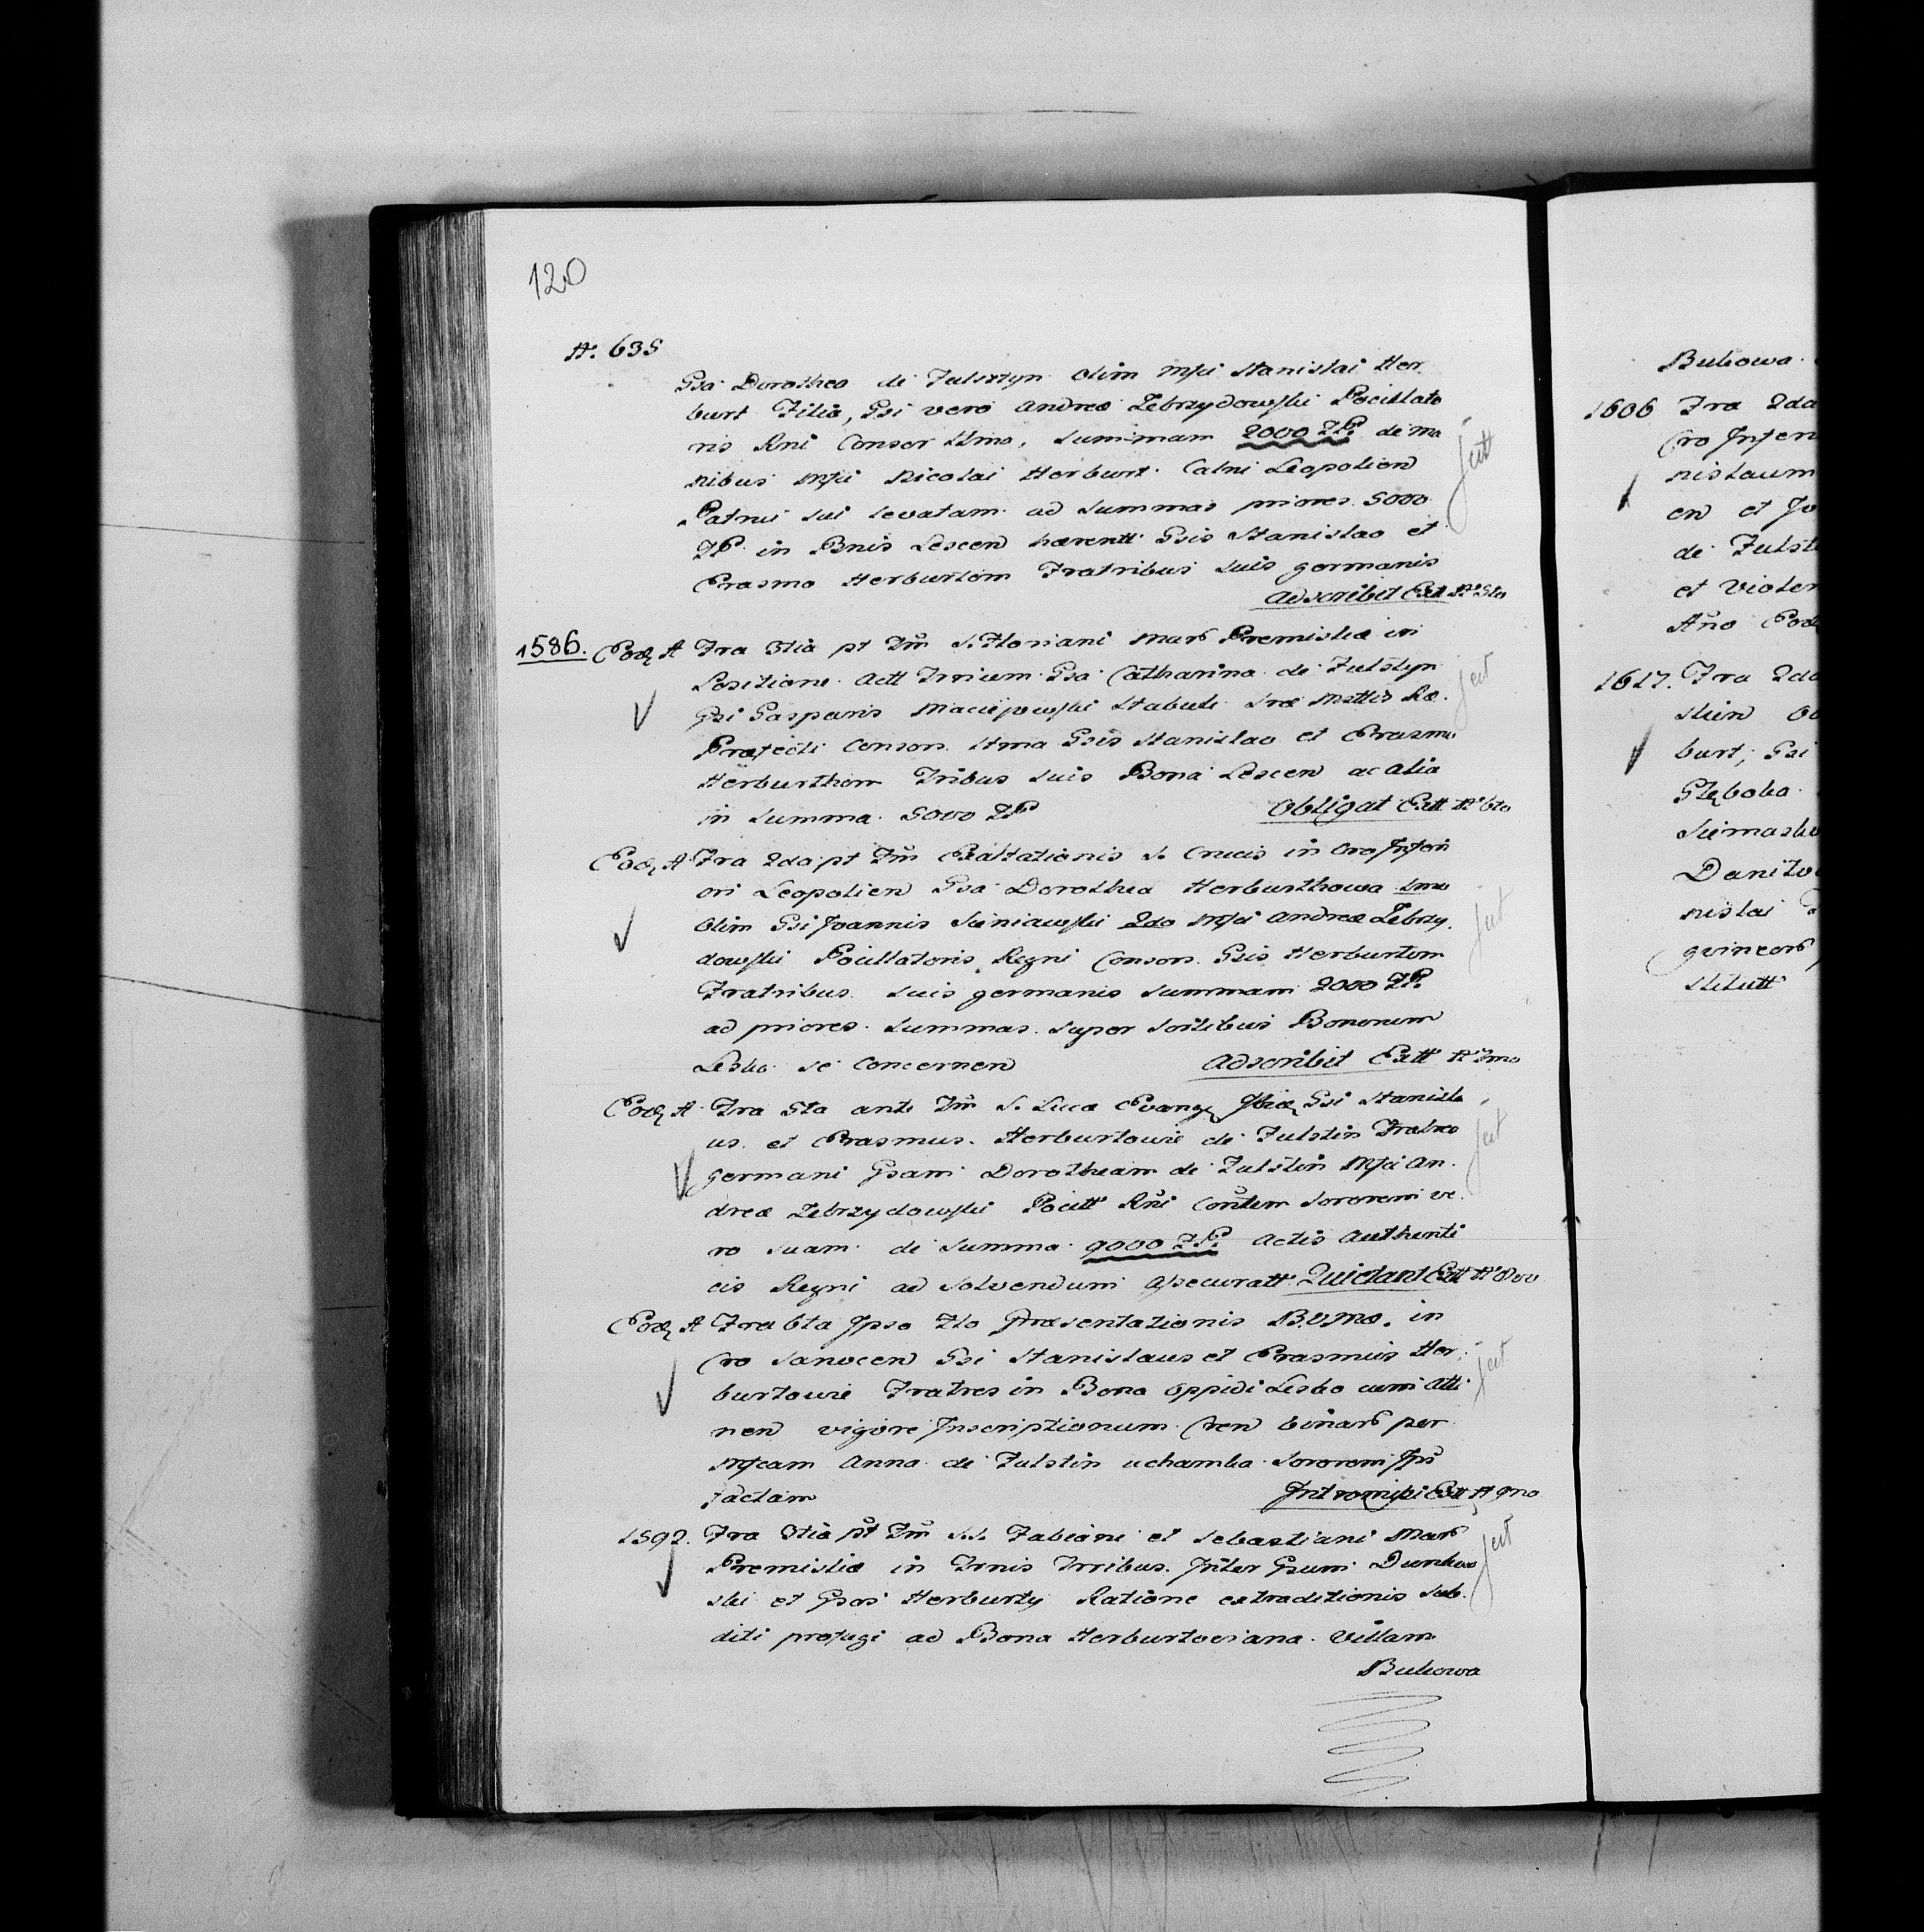 120
A. 635
Gsa Dorothea de Fulsztyn olim Mfci Stanislai Her
burt Filia, Gsi vero Andreæ Zebrzydowski Pocillato
ris Rni Consor ltma, Summam 2000 ZP. de ma
nibus Mfci Nicolai Herburt Calni Leopolien
Patrui sui levatam ad Summas priores 5000
ZP. in Bnis Lescen hærentt Gsis Stanislao et
Erasmo Herburtom Fratribus suis germanis
adscribit Extt
jest
1586. Eod A Fra 3tia pt Fm S. Floriani Mars Premisliæ in
Positione Actt Trrium Gsa Catharina de Fulstyn
Gsi Gasparis Maciejowski Stabuli
Præfecti Consors ltma Gsis Stanislao et Erasmo
Herburthom Fribus suis Bona Lescen ac alia
in Summa 5000 ZP obligat Extt
jest
Eod A Fra 2da pt Fm Exaltationis S. Crucis in Cro Inferi
ori Leopolien Gsa Dorothea Herburthowa 1mo
olim Gsi Joannis Sieniawski 2do Mfci Andreæ Zebrzy
dowski Pocillatoris Regni Consors Gsis Herburtom
Fratribus suis germanis Summam 2000 ZP.
ad priores Summas super Sortibus Bonorum
Lesko se concernen adscribit Extt
jest
Eod A Fra 5ta ante Fm S. Lucæ Evang Gsi Stanisla
us et Erasmus Herburtowie de Fulstin Fratres
germani Gsam Dorotheam de Fulstin Mfci An
dreæ Zebrzydowski Pocill Rni Contem Sororem ve
ro suam de Summa 9000 ZP. Actis Authenti
cis Regni ad solvendum assecuratt Quietant Extt
jest
Eod A Fra 6ta Ipso Fto Præsentationis B.V.Mæ. in
Cro Sanocen Gsi Stanislaus et Erasmus Her
burtowie Fratres in Bona oppidi Lesko cum atti
nen vigore Inscriptionum binars per
Mfcam Anna de Fulstin Uchanska Sororem
factam Intromissi Extt
jest
1592. Fra 3tia pt Fm S.S. Fabiani et Sebastiani Mars
Premisliæ in Trnis Trribus. Inter Gsum
ski et Gsos Herburty Ratione extraditionis sub
diti profugi ad Bona Herburtoviana Villam
Bukowa
jest
Bukowa
1606 Fra 2da
Cro Inferi
nislaum
en et Jo
de Fulst
et violen
Año Eod
1617. Fra 2da
burt, Gsi
Głęboka
Danilo
nislai